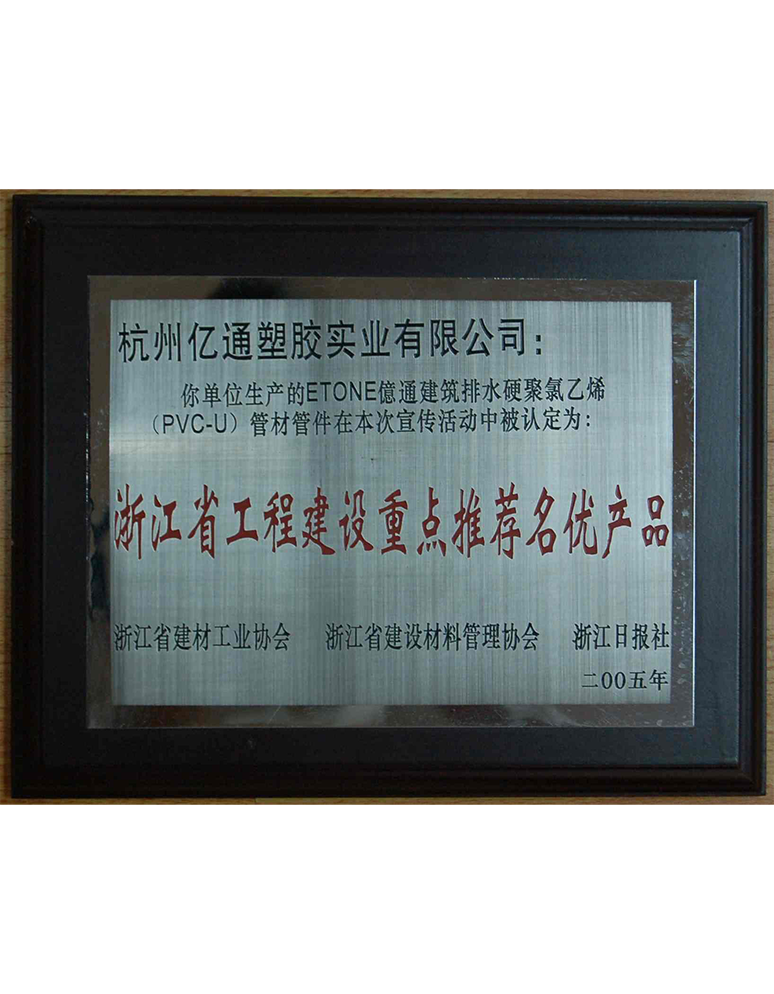 杭州亿通塑胶实业有限公司：
你单位生产的ETONE億通建筑排水硬聚氯乙烯
（PVC-U）管材管件在本次宣传活动中被认定为：
浙江省工程建设重点推荐名优产品
浙江省建材工业协会 浙江省建设材料管理协会 浙江日报社
二00五年